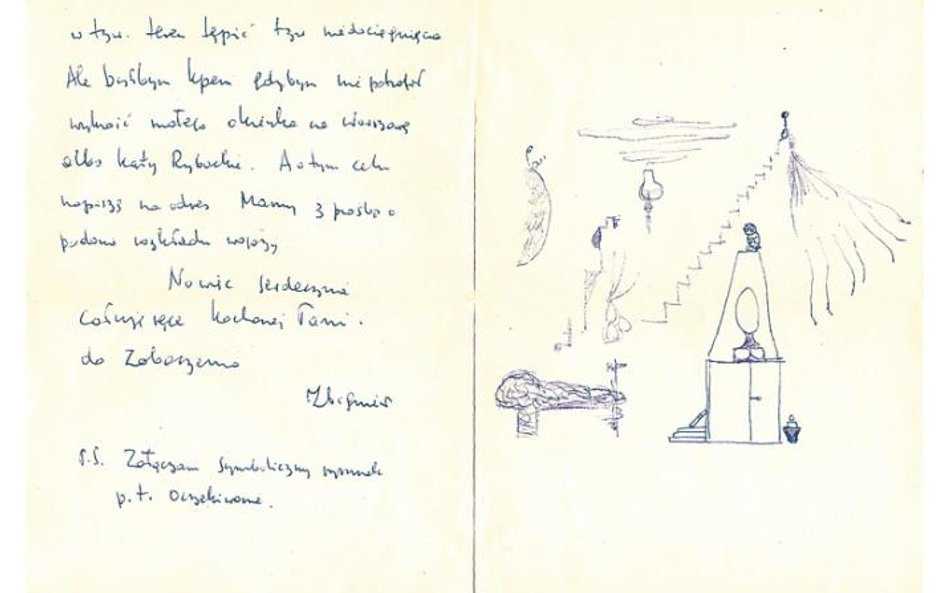 w tzw. teren tępić tzw niedociągnięcia
Ale byłbym kpem gdybym nie potrafił
wykroić małego okienka na Warszawę
albo Kąty Rybackie. A w tym celu
napiszę na adres Mamy z prośbą o
podanie rozkładu wojaży
No więc serdecznie
całuję ręce kochanej Pani.
do zobaczenia
Zbigniew
P.S. Załączam symboliczny rysunek
p.t. Oczekiwanie.